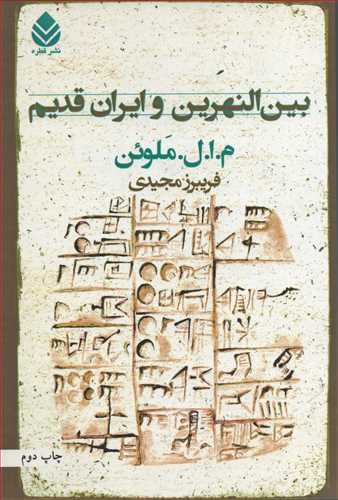 نشر قطره
بین‌النهرین و ایران قدیم
م.ا.ل.مَلوئن
فریبرز مجیدی
چاپ دوم